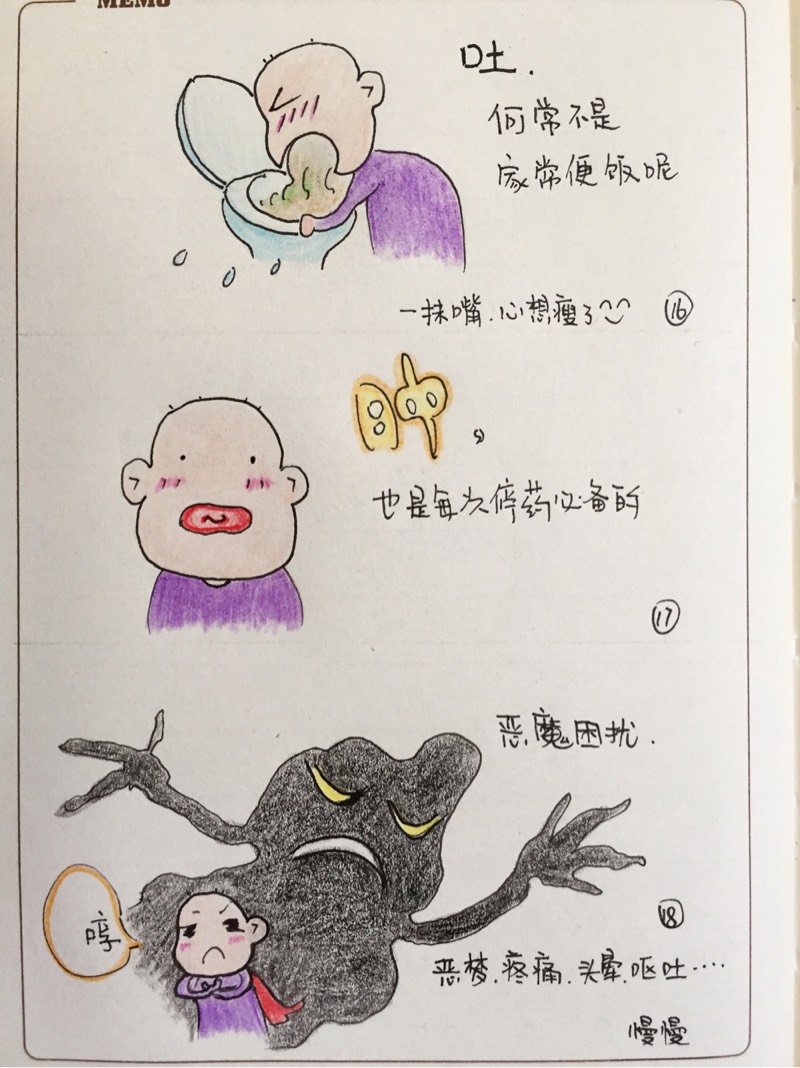 MEMO
吐.
何常不是
家常便饭呢
一抹嘴.心想瘦了
16
肿。
也是每次停药必备的
17
恶魔困扰.
哼
18
恶梦.疼痛.头晕.呕吐····
慢慢